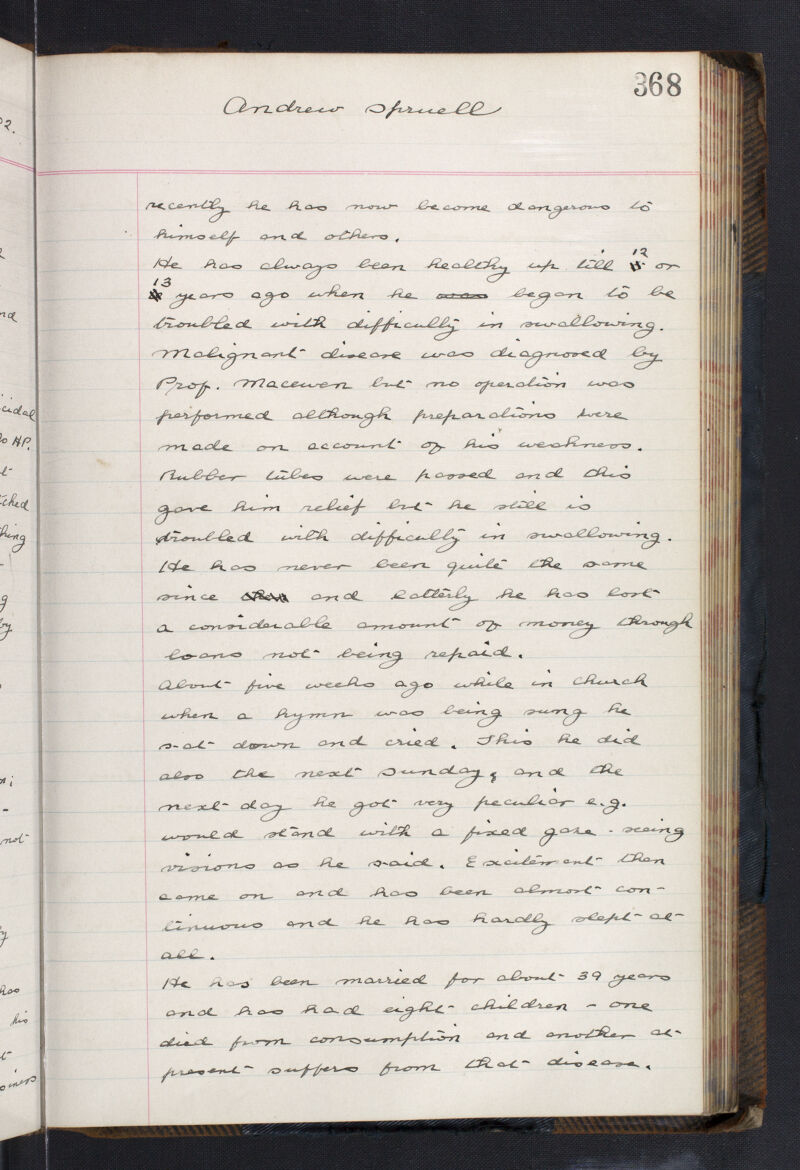 368
Andrew Spruell
recently he has now become dangerous to
himself and others.
He has always been healthy up till 12 or
13 years ago when he was began to be
troubled with difficulty in swallowing.
Malignant disease was diagnosed by
Prof. Macewen but no operation was
performed although preparations were
made on account of his weakness.
Rubber tubes were passed and this
gave him relief but he still is
troubled with difficulty in swallowing.
He has never been quite the same
since and latterly he has lost
a considerable amount of money through
loans not being repaid.
About five weeks ago while in church
when a hymn was being sung he
sat down and cried. This he did
also the next Sunday, and the
next day he got very peculiar e.g.
would stand with a fixed gaze - seeing
visions as he said. Excitement then
came on and has been almost con-
tinuous and he has hardly slept at
all.
He has been married for about 39 years
and has had eight children - one
died from consumption and another at
present suffers from that disease.
02.
nd
cidal
to HP.
t
tched
hing
g
by
n;
-
not
y
has
his
t
siness